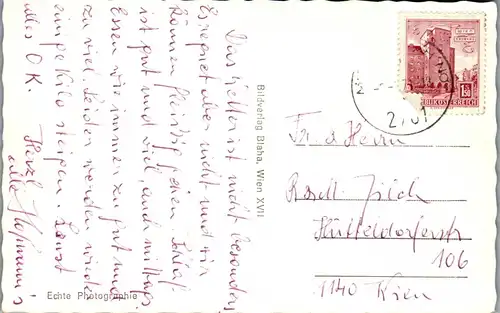 Das Wetter ist nicht besonders,
Es regnet aber nicht und wir
können fleissig gehen. Schlaf
ist gut und viel, auch mittags
Essen wie immer zu gut und
zu viel. Leider werden wieder
ein paar kilo steigen. Sonst
alles O.K. Herzl.
alle Hofmanns
Bildverlag Blaha, Wien XVII
Echte Photographie
REPUBLIK ÖSTERREICH
1.50
2701
Fr. & Herrn
Hütteldorferstr
106
1140 Wien